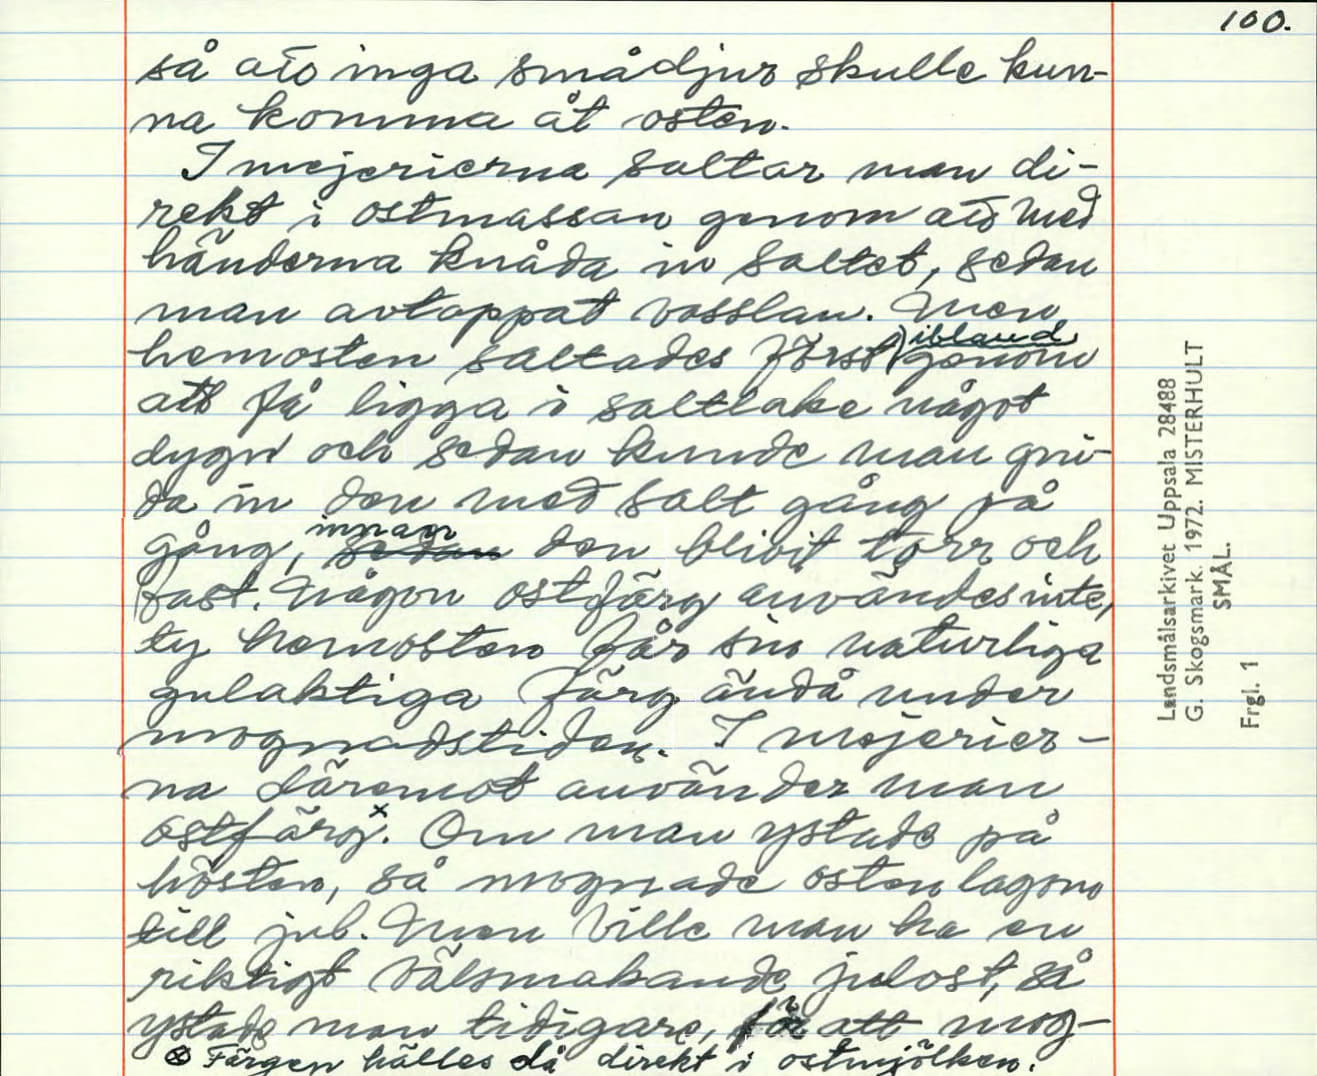 100.
så att inga smådjur skulle kun-
na komma åt osten.
I mejerierna saltar man di-
rekt i ostmassan genom att med
händerna knåda in saltet, sedan
man avtappat vasslan. Men
ibland
hemosten saltades först genom
att få ligga i saltlake något
dygn och sedan kunde man gni-
da in den med salt gång på
innan
gång, sedan den blivit torr och
fast. Någon ostfärg användes inte,
ty hemosten får sin naturliga
gulaktiga färg ändå under
mognadstiden. I mejerier-
na däremot använder man
ostfärg.x Om man ystade på
hösten, så mognade osten lagom
till jul. Men ville man ha en
riktigt välsmakande julost, så
ystade man tidigare, för att mog-
⊗ Färgen hälles då direkt i ostmjölken.
Landsmålsarkivet Uppsala 28488
G. Skogsmark. 1972. MISTERHULT
SMÅL.
Frgl. 1